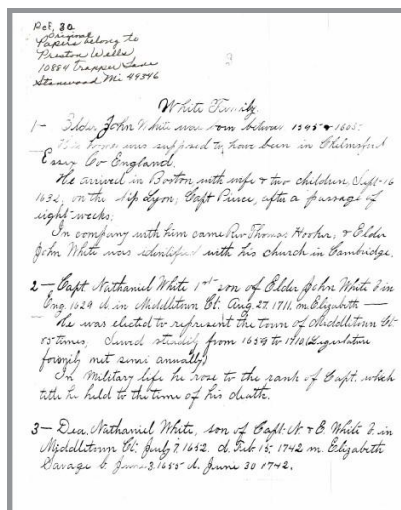 Oct. 30
Original
Papers belong to
Preston Wells
10884 Trapper Lane
Stanwood Mi 49346
3
White Family.
1 – Elder John White was born between 1595 & 1605.
His home was supposed to have been in Chelmsford
Essex Co England.
He arrived in Boston with wife & two children, Sept-16
1632, on the ship Lyon; Capt Pierce, after a passage of
eight weeks;
In company with him came Rev Thomas Hooker, & Elder
John White was identified with his church in Cambridge.
2 – Capt Nathaniel White 1st son of Elder John White b. in
Eng. 1629 d. in Middletown Ct. Aug. 27. 1711. m. Elizabeth —
He was elected to represent the town of Middletown Ct.
85 times, Served steadily from 1659 to 1710 (Legislature
formerly met semi annually)
In Military life he rose to the rank of Capt. which
title he held to the time of his death.
3 – Dea. Nathaniel White, son of Capt. N. & E. White b. in
Middletown Ct. July 7. 1652. d. Feb 15. 1742 m. Elizabeth
Savage b. June 3. 1655 d. June 30 1742.